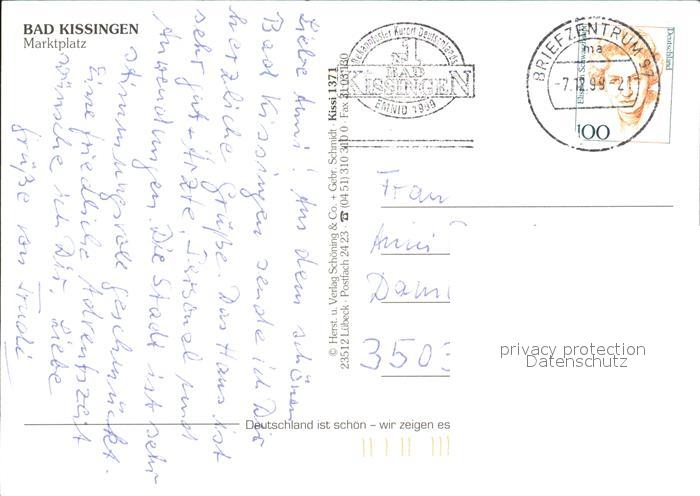 BAD KISSINGEN
Marktplatz
Liebe Anni! Aus dem schönen
Bad Kissingen sende ich Dir
herzliche Grüße. Das Haus ist
sehr gut - Ärzte, Personal und
Anwendungen. Die Stadt ist sehr
stimmungsvoll geschmückt.
Eine friedliche Adventszeit
wünsche ich Dir, Liebe
Grüße von Trudi
© Herst. u. Verlag Schöning & Co. + Gebr. Schmidt · Kissi 1371
23512 Lübeck · Postfach 24 23 · ☎ (04 51) 310 310 0 · Fax 31 03 130
Bekanntester Kurort Deutschlands
BAD
KISSINGEN
BRIEFZENTRUM 97
ma
-7.12.99-21
Deutschland
100
Frau
Anni
3503
privacy protection
Datenschutz
Deutschland ist schön – wir zeigen es